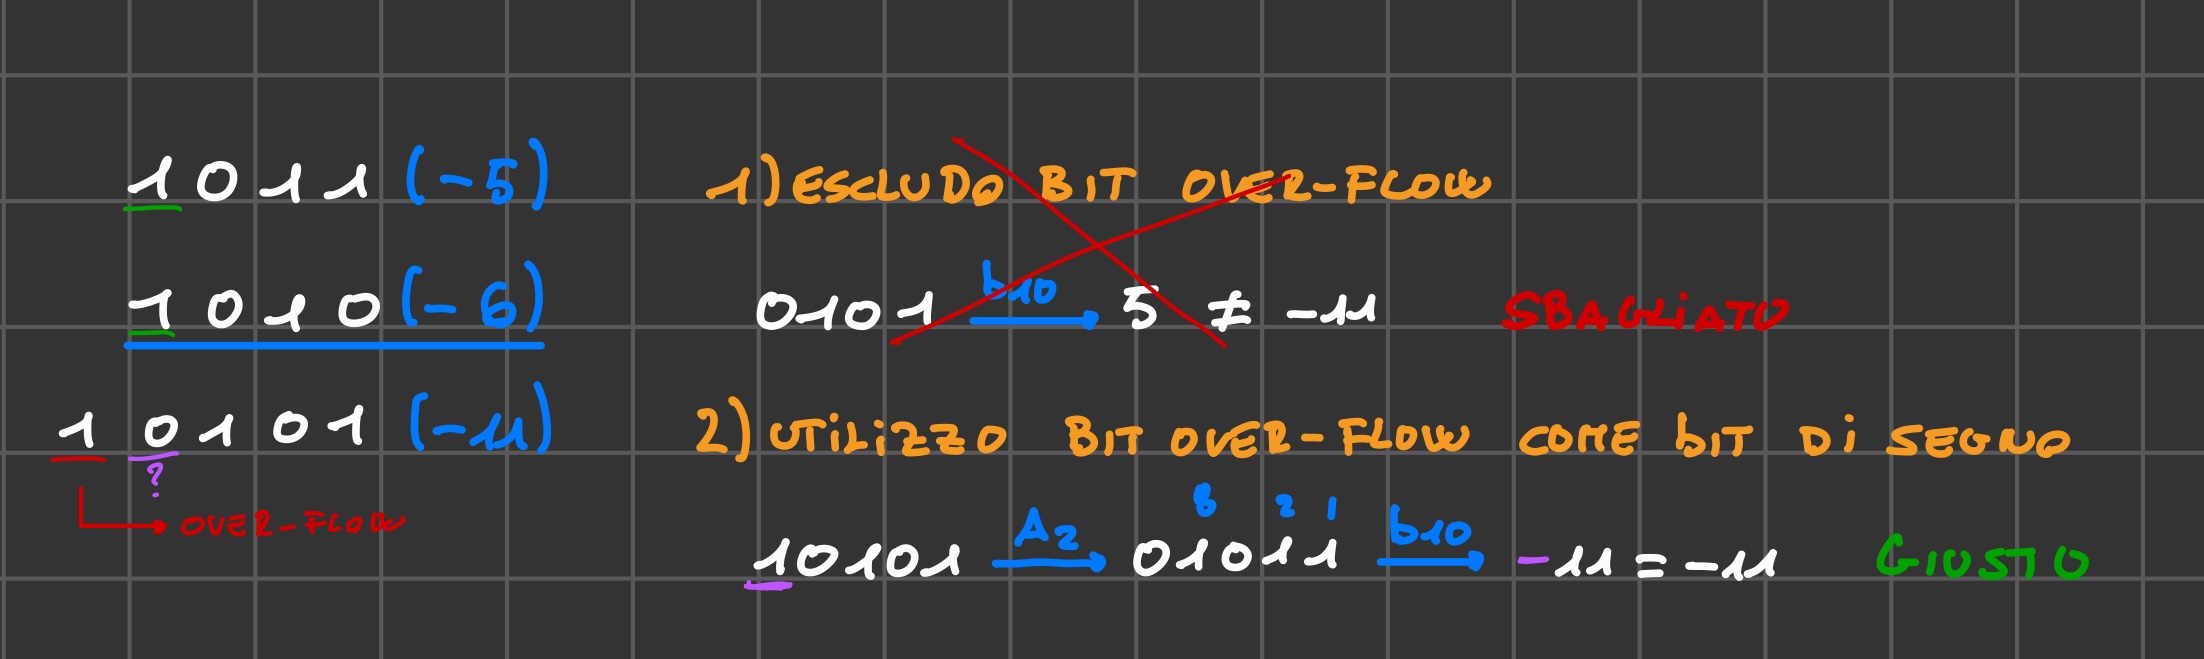 1011 (-5)
1010 (-6)
10101 (-11)
?
OVER-FLOW
1) ESCLUDO BIT OVER-FLOW
0101 b10 5 ≠ -11 SBAGLIATO
2) UTILIZZO BIT OVER-FLOW COME BIT DI SEGNO
8 2 1
10101 A2 01011 b10 -11 = -11 GIUSTO